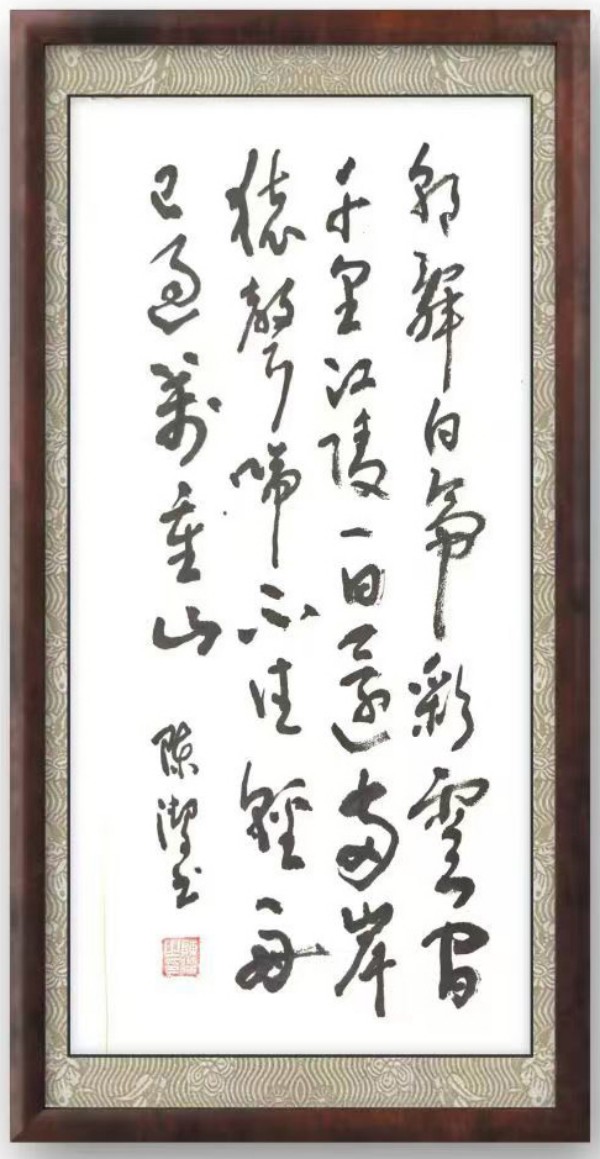 朝辭白帝彩雲間
千里江陵一日還兩岸
猿聲啼不住輕舟
已過萬重山
陳潔書